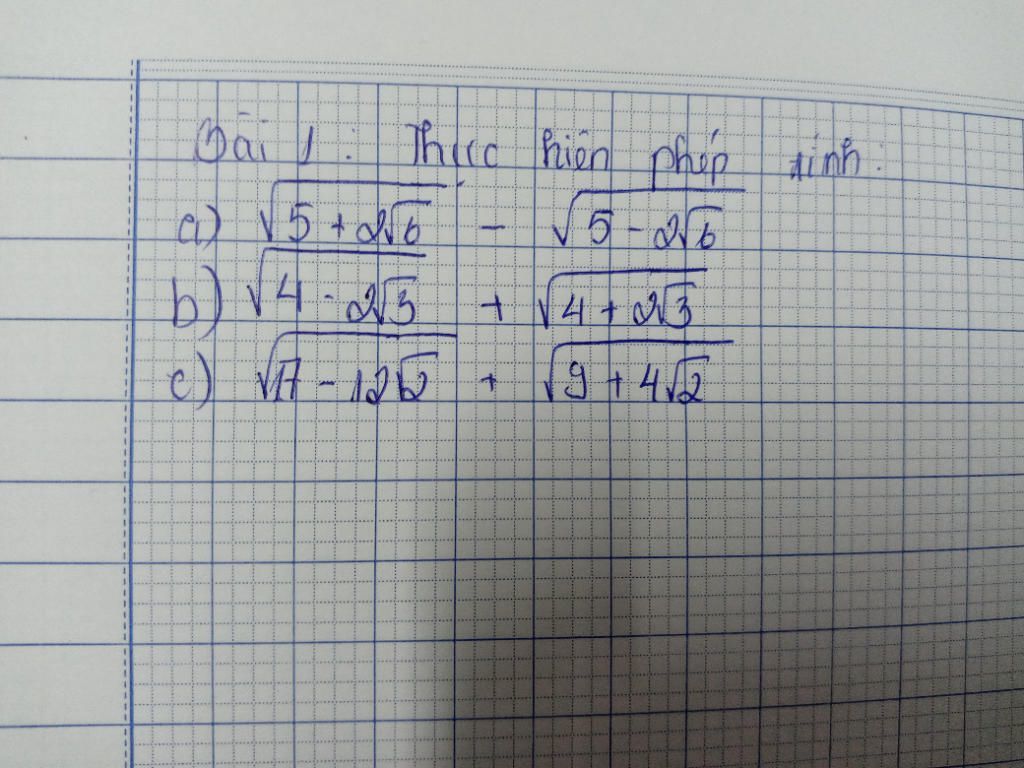 Bài 1 : Thực hiện phép tính :
a) √(5 + 2√6) - √(5 - 2√6)
b) √(4 - 2√3) + √(4 + 2√3)
c) √(17 - 12√2) + √(9 + 4√2)